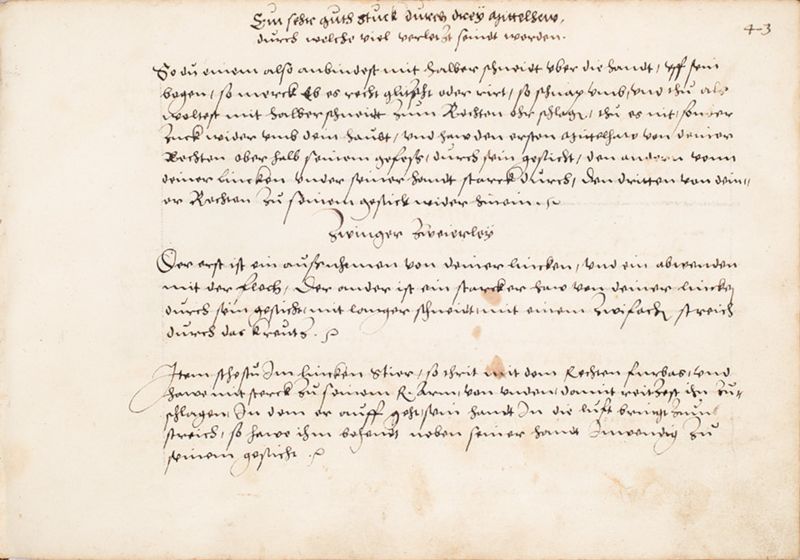 Ein sehr guth stuck durch drey Mittelhew,
durch welche viel verletzt seindt worden.
43
So du einem also anbindest mit halber schneidt vber die handt, vff sein
bogen, so merck Eb es recht glutscht oder rirt, so schnap vmb, vnd thu als
woltest mit halber schneidt zum Rechten ohr schlagen, thu es nit, sonder
zuck wider vmb dein haubt, vnd haw den ersten Mittelhaw von deiner
Rechten ober halb seinem gefess, durch sein gesicht, den andern vonn
deiner lincken vnder seiner handt starck durch, den dritten von dein-
er Rechten zu seinem gesicht wider hinein.
Zwinger Zweierley
Der erst ist ein ausnehmen von deiner lincken, vnd ein abwenden
mit der flech, Der ander ist ein starcker haw von deiner lincken
durch sein gesicht, mit langer schneidt, mit einem zwifachen streich
durch das kreutz.
Item stehstu Im lincken Stier, so thrit mit dem Rechten furbas, vnd
hawe mit sterck zu seinem R. Arm, von vnden, damit reitzest ihn zu-
schlagen, In dem er auff geht, sein handt In die lufft bringt zum
streich, so hawe ihm behendt neben seiner handt Inwendig zu
seinem gesicht.